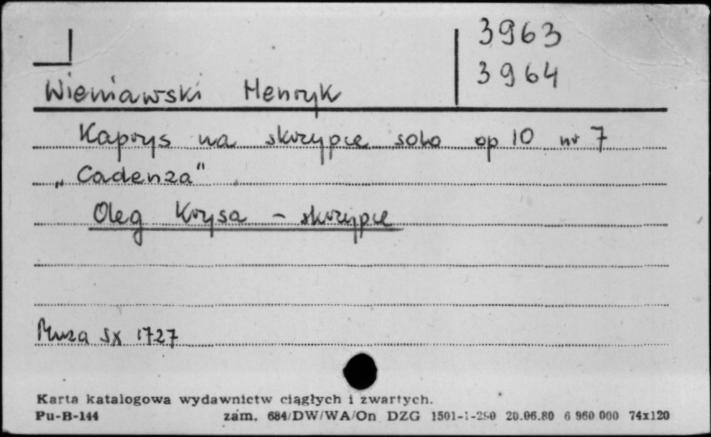 3963
3964
Wieniawski Henryk
Kaprys na skrzypce solo op 10 nr 7
„Cadenza"
Oleg Krysa - skrzypce
Muza SX 1727
Karta katalogowa wydawnictw ciągłych i zwartych.
Pu-B-144 zam. 684/DW/WA/On DZG 1501-1-280 20.06.80 6 960 000 74x120